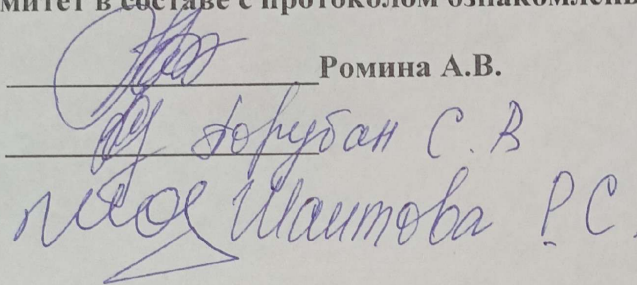 митет в составе с протоколом ознакомлены
Ромина А.В.
Торубан С.В
Шаитова Р.С.